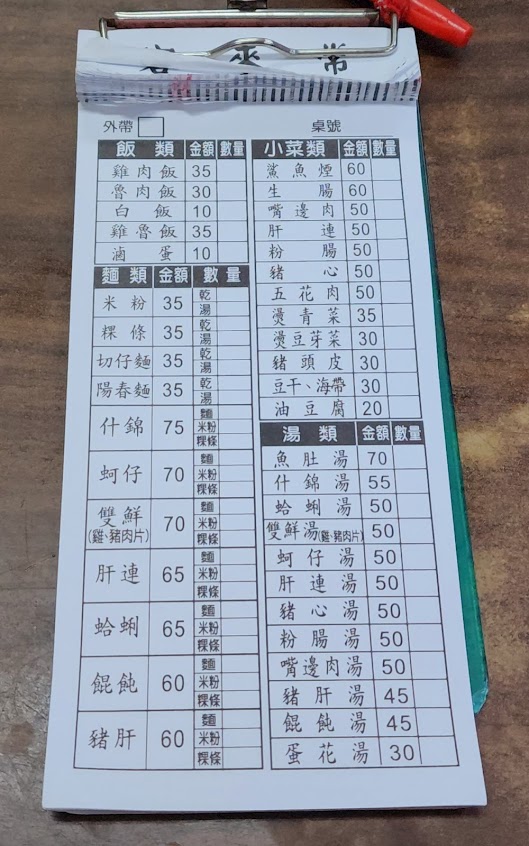 客來常
外帶 桌號
飯類 金額 數量
雞肉飯 35
魯肉飯 30
白飯 10
雞魯飯 35
滷蛋 10
麵類 金額 數量
米粉 35 乾 湯
粿條 35 乾 湯
切仔麵 35 乾 湯
陽春麵 35 乾 湯
什錦 75 麵 米粉 粿條
蚵仔 70 麵 米粉 粿條
雙鮮(雞、豬肉片) 70 麵 米粉 粿條
肝連 65 麵 米粉 粿條
蛤蜊 65 麵 米粉 粿條
餛飩 60 麵 米粉 粿條
豬肝 60 麵 米粉 粿條
小菜類 金額 數量
鯊魚煙 60
生腸 60
嘴邊肉 50
肝連 50
粉腸 50
豬心 50
五花肉 50
燙青菜 35
燙豆芽菜 30
豬頭皮 30
豆干、海帶 30
油豆腐 20
湯類 金額 數量
魚肚湯 70
什錦湯 55
蛤蜊湯 50
雙鮮湯(雞、豬肉片) 50
蚵仔湯 50
肝連湯 50
豬心湯 50
粉腸湯 50
嘴邊肉湯 50
豬肝湯 45
餛飩湯 45
蛋花湯 30